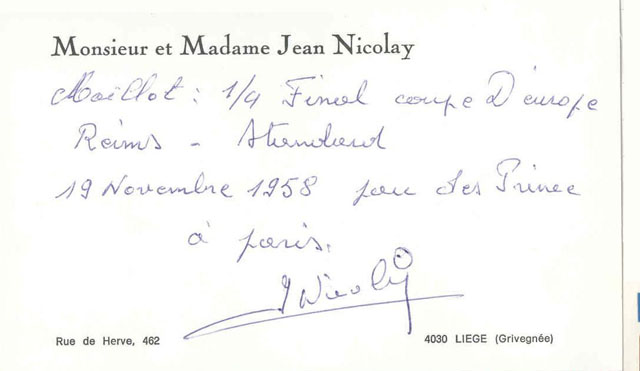 Monsieur et Madame Jean Nicolay
Maillot : 1/4 Final coupe D'europe
Reims - Standard
19 Novembre 1958 parc des Prince
à paris.
J Nicolay
Rue de Herve, 462
4030 LIEGE (Grivegnée)